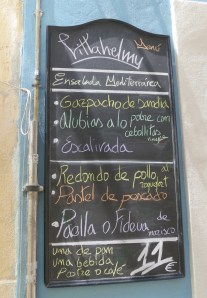 Pittahelmy
Menú
Ensalada Mediterránea
• Gazpacho de Sandia
• Alubias a lo pobre con
cebollitas
• Escalivada
• Redondo de pollo al
roquefort
• Pastel de pescado
• Paella o Fideua de
marisco
una de pan
una bebida
Postre o café
11 €